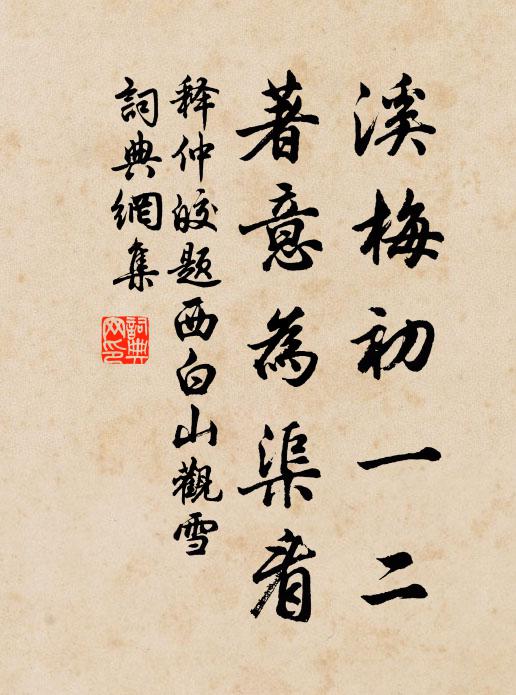 溪梅初一二
著意為渠看
释仲皎题西白山觀雪
詞典網集
詞典
网印